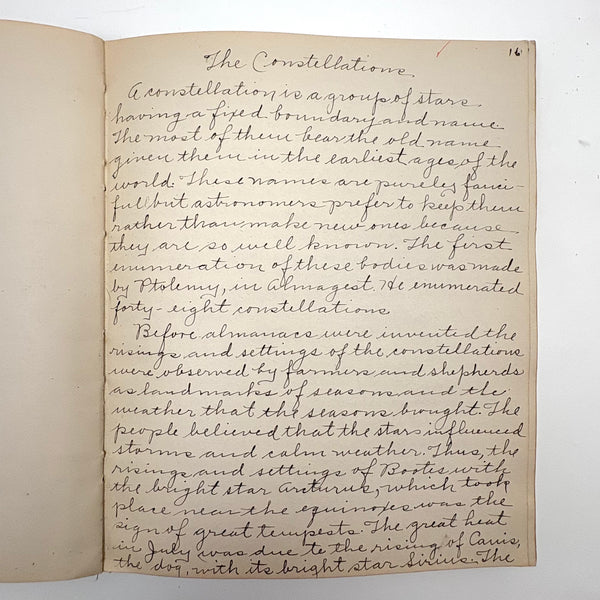 16
The Constellations
A constellation is a group of stars
having a fixed boundary and name
The most of them bear the old name
given them in the earliest ages of the
world. These names are purely fanci-
ful but astronomers prefer to keep them
rather than make new ones because
they are so well known. The first
enumeration of these bodies was made
by Ptolemy, in Almagest. He enumerated
forty-eight constellations
Before almanacs were invented the
risings and settings of the constellations
were observed by farmers and shepherds
as landmarks of seasons and the
weather that the seasons brought. The
people believed that the stars influenced
storms and calm weather. Thus, the
risings and settings of Bootes with
the bright star Arcturus, which took
place near the equinoxes was the
sign of great tempests. The great heat
in July was due to the rising of Canis,
the dog, with its bright star Sirius. The